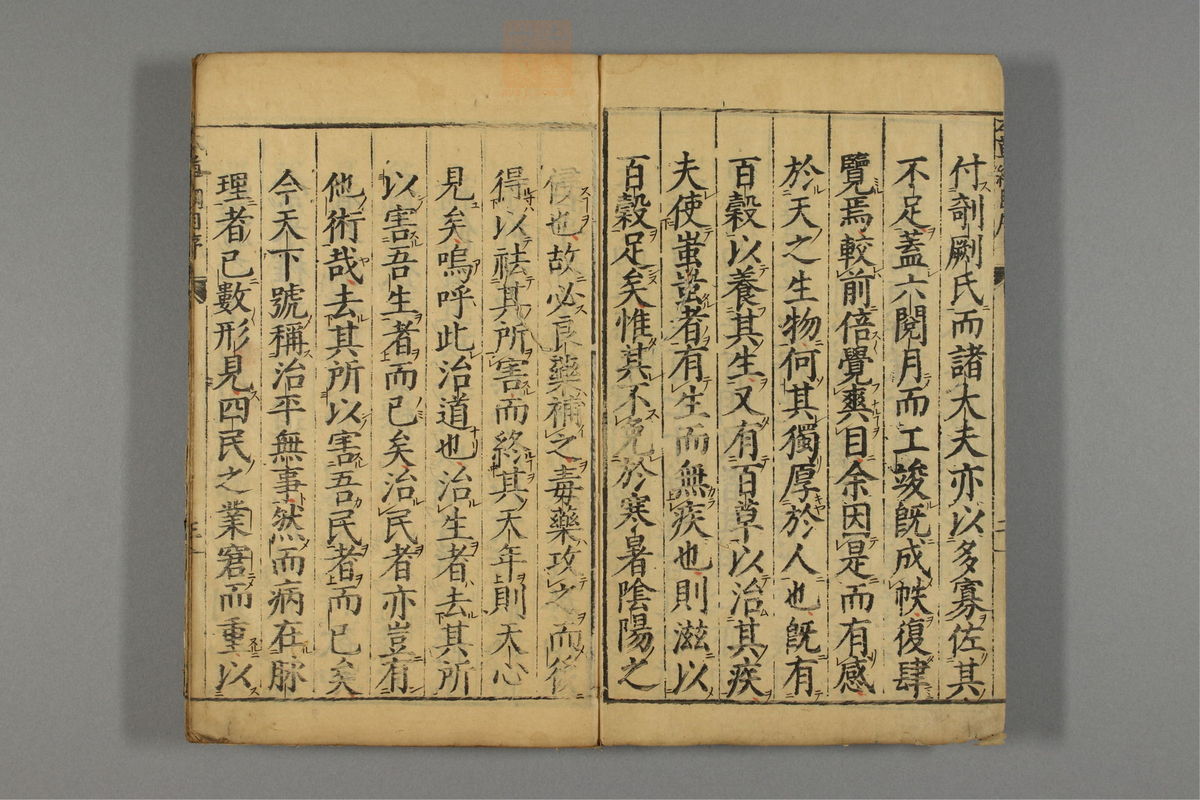 付剞劂氏而諸大夫亦以多寡佐其
不足蓋六閱月而工竣既成帙復肆
覽焉較前倍覺爽目余因是而有感
於天之生物何其獨厚於人也既有
百穀以養其生又有百草以治其疾
夫使蚩蚩者有生而無疾也則滋以
百穀足矣惟其不免於寒暑陰陽之
侵也故必良藥補之毒藥攻之而後
得以祛其所害而終其天年則天心
見矣嗚呼此治道也治生者去其所
以害吾生者而已矣治民者亦豈有
他術哉去其所以害吾民者而已矣
今天下號稱治平無事然而病在脉
理者已數形見四民之業窘而重以